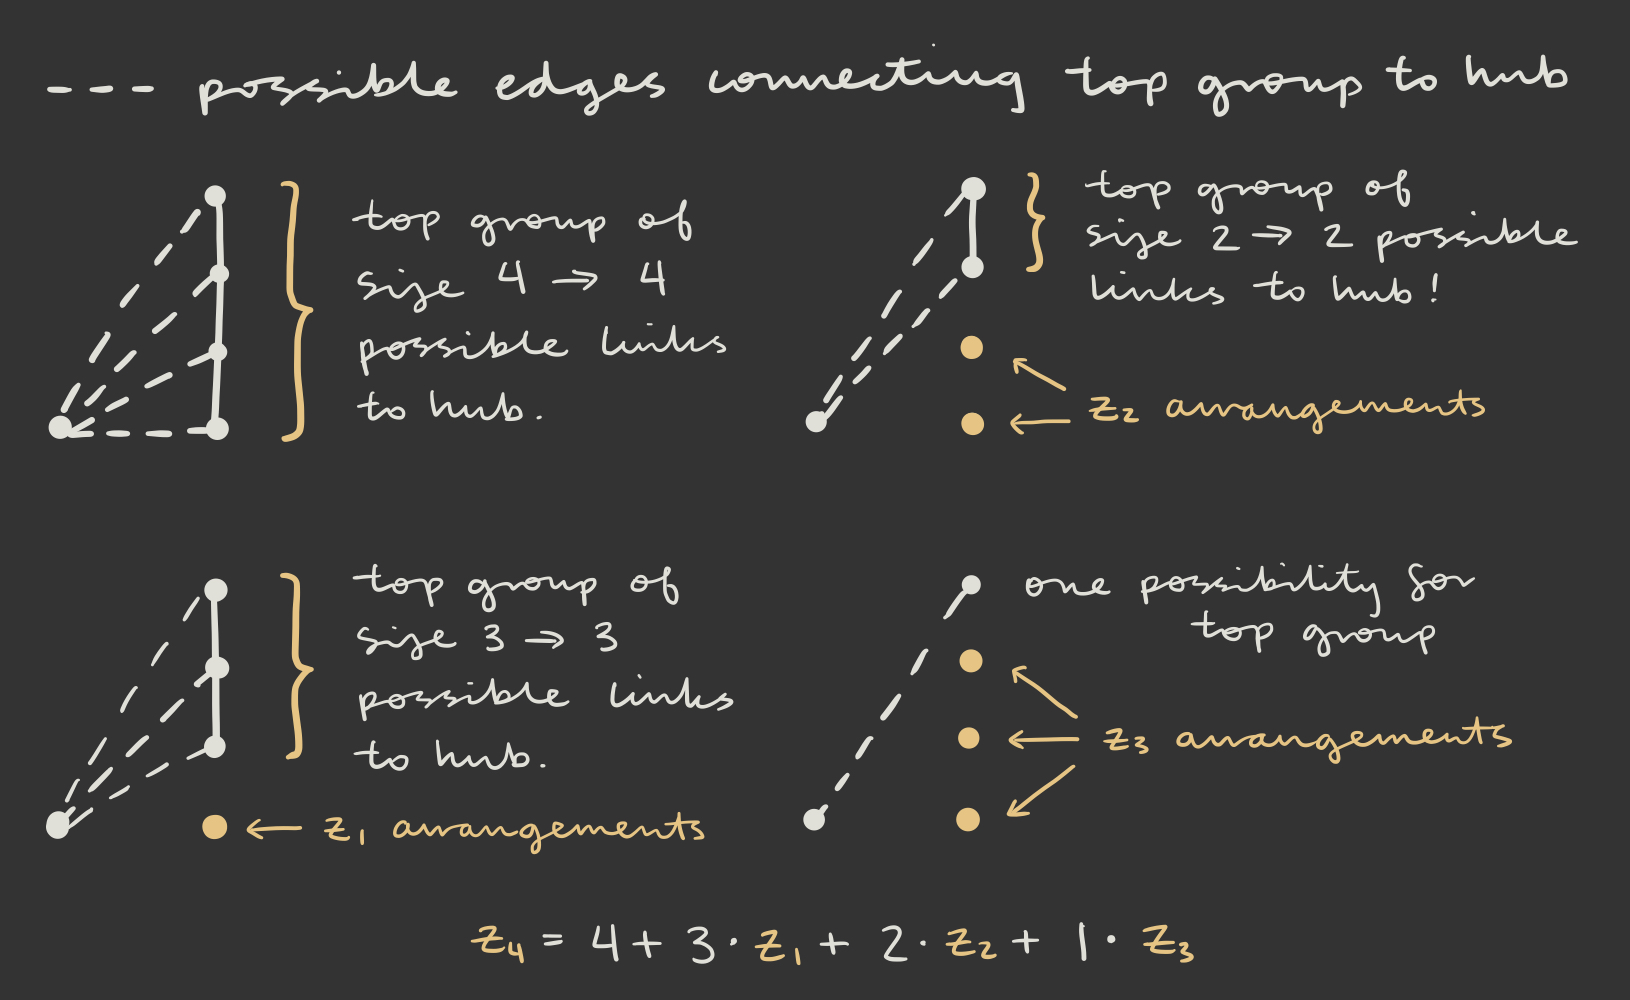 --- possible edges connecting top group to hub
top group of
size 4 → 4
possible links
to hub.
top group of
size 2 → 2 possible
links to hub!
z₂ arrangements
top group of
size 3 → 3
possible links
to hub.
z₁ arrangements
one possibility for
top group
z₃ arrangements
z₄ = 4 + 3 · z₁ + 2 · z₂ + 1 · z₃